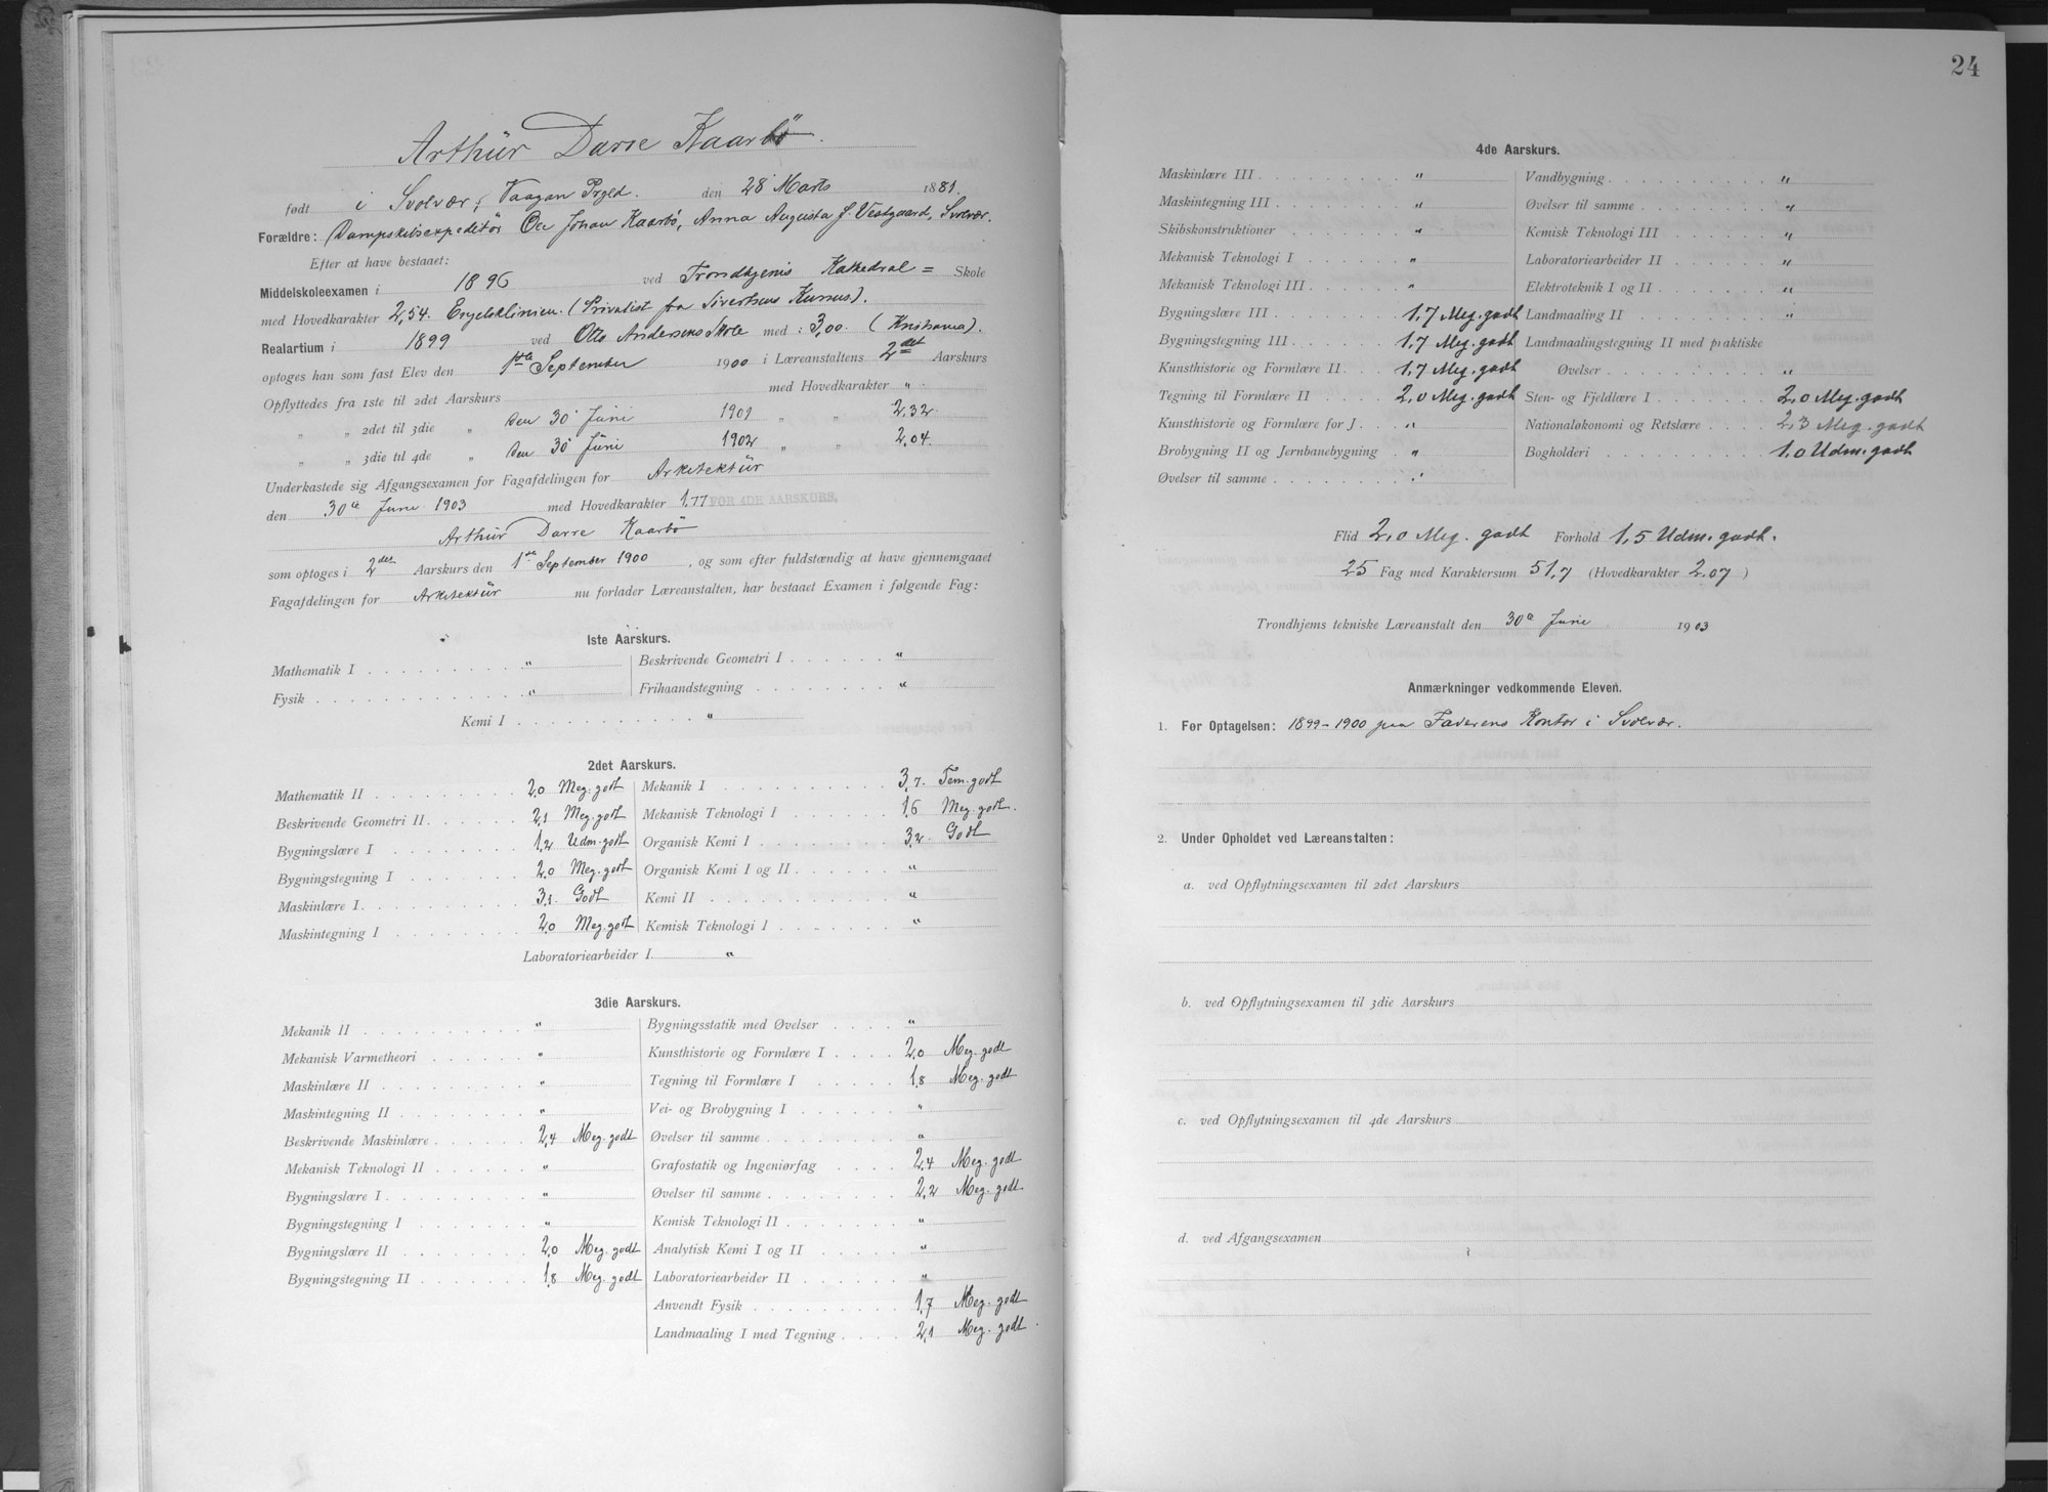 Arthur Darre Kaarbö.
født i Svolvær, Vaagan Prgld. den 28 Marts 1881.
Forældre: Dampskibsexpeditör Ole Johan Kaarbö, Anna Augusta f. Vestgaard, Svolvær.
Efter at have bestaaet:
Middelskoleexamen i 1896 ved Trondhjems Kathedral = Skole
med Hovedkarakter 2,54. Engelsklinien. (Privatist fra Sivertsens Kursus).
Realartium i 1899 ved Otto Andersens Skole med: 3,00. (Kristiania).
optoges han som fast Elev den 1ste September 1900 i Læreanstaltens 2det Aarskurs
Opflyttedes fra 1ste til 2det Aarskurs med Hovedkarakter "
" " 2det til 3die " den 30 Juni 1901 " " 2.32.
" " 3die til 4de " den 30 Juni 1902 " " 2,04.
Underkastede sig Afgangsexamen for Fagafdelingen for Arkitektür
den 30te Juni 1903 med Hovedkarakter 1,77 FOR 4DE AARSKURS.
Arthur Darre Kaarbö
som optoges i 2det Aarskurs den 1ste September 1900, og som efter fuldstændig at have gjennemgaaet
Fagafdelingen for Arkitektür nu forlader Læreanstalten, har bestaaet Examen i følgende Fag:
1ste Aarskurs.
Mathematik I " Beskrivende Geometri I "
Fysik " Frihaandstegning "
Kemi I "
2det Aarskurs.
Mathematik II 2,0 Meg. godt Mekanik I 3,7. Tem. godt
Beskrivende Geometri II 2,1 Meg. godt Mekanisk Teknologi I 1,6 Meg. godt.
Bygningslære I 1,2 Udm. godt Organisk Kemi I 3,2. Godt
Bygningstegning I 2,0 Meg. godt Organisk Kemi I og II "
Maskinlære I 3,1. Godt Kemi II "
Maskintegning I 2,0 Meg. godt Kemisk Teknologi I "
Laboratoriearbeider I "
3die Aarskurs.
Mekanik II " Bygningsstatik med Øvelser "
Mekanisk Varmetheori " Kunsthistorie og Formlære I 2,0 Meg. godt
Maskinlære II " Tegning til Formlære I 1,8 Meg. godt
Maskintegning II " Vei- og Brobygning I "
Beskrivende Maskinlære 2,4 Meg. godt Øvelser til samme "
Mekanisk Teknologi II " Grafostatik og Ingeniørfag 2,4 Meg. godt
Bygningslære I " Øvelser til samme 2,2 Meg. godt
Bygningstegning I " Kemisk Teknologi II "
Bygningslære II 2,0 Meg. godt Analytisk Kemi I og II "
Bygningstegning II 1,8 Meg. godt Laboratoriearbeider II "
Anvendt Fysik 1,7 Meg. godt
Landmaaling I med Tegning 2,1 Meg. godt.
24
4de Aarskurs.
Maskinlære III " Vandbygning "
Maskintegning III " Øvelser til samme "
Skibskonstruktioner " Kemisk Teknologi III "
Mekanisk Teknologi I " Laboratoriearbeider II "
Mekanisk Teknologi III " Elektroteknik I og II "
Bygningslære III 1,7 Meg. godt Landmaaling II "
Bygningstegning III 1,7 Meg. godt Landmaalingstegning II med praktiske
Kunsthistorie og Formlære II 1,7 Meg. godt Øvelser "
Tegning til Formlære II 2,0 Meg. godt Sten- og Fjeldlære I 2,0 Meg. godt
Kunsthistorie og Formlære for J. " Nationaløkonomi og Retslære 2,3 Meg. godt
Brobygning II og Jernbanebygning " Bogholderi 1,0 Udm. godt
Øvelser til samme "
Flid 2,0 Meg. godt Forhold 1,5 Udm. godt.
25 Fag med Karaktersum 51,7 (Hovedkarakter 2,07)
Trondhjems tekniske Læreanstalt den 30te Juni 1903
Anmærkninger vedkommende Eleven.
1. Før Optagelsen: 1899-1900 paa Faderens Kontor i Svolvær.
2. Under Opholdet ved Læreanstalten:
a. ved Opflytningsexamen til 2det Aarskurs
b. ved Opflytningsexamen til 3die Aarskurs
c. ved Opflytningsexamen til 4de Aarskurs
d. ved Afgangsexamen